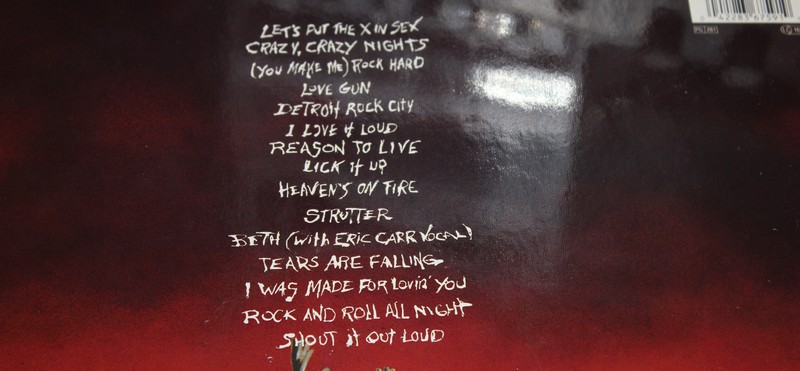 LET'S PUT THE X IN SEX
CRAZY, CRAZY NIGHTS
(YOU MAKE ME) ROCK HARD
LOVE GUN
DETROIT ROCK CITY
I LOVE it LOUD
REASON TO LIVE
LICK it UP
HEAVEN'S ON FIRE
STRUTTER
BETH (with ERIC CARR VOCAL)
TEARS ARE FALLING
I WAS MADE FOR Lovin' YOU
ROCK AND ROLL ALL NIGHT
SHOUT it OUT LOUD